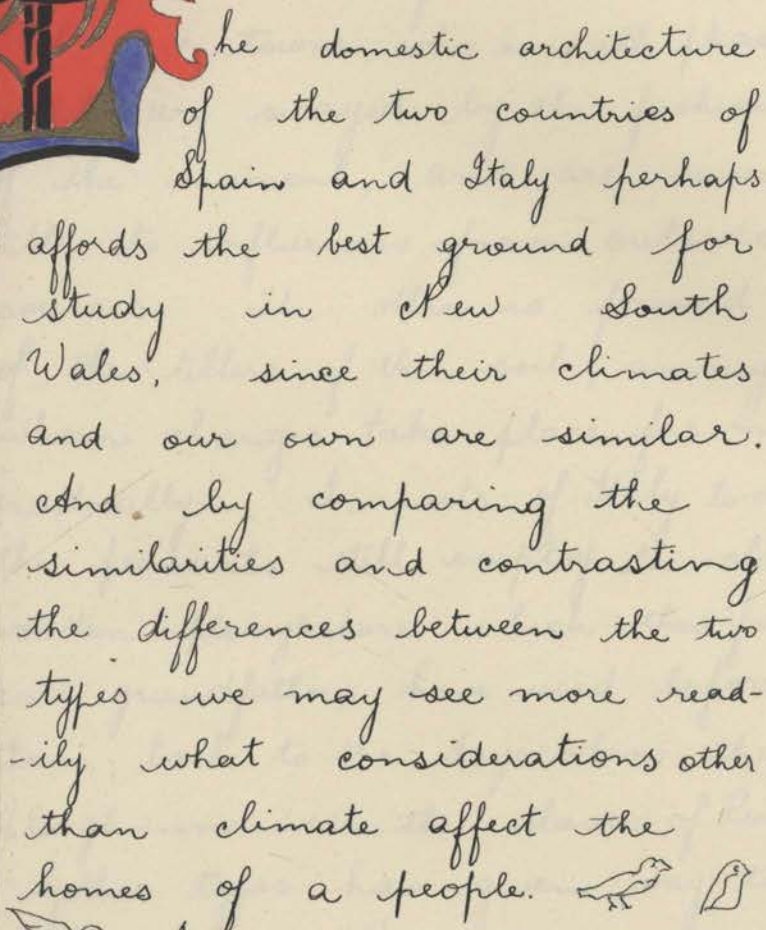 The domestic architecture
of the two countries of
Spain and Italy perhaps
affords the best ground for
study in New South
Wales, since their climates
and our own are similar.
And by comparing the
similarities and contrasting
the differences between the two
types we may see more read-
-ily what considerations other
than climate affect the
homes of a people.